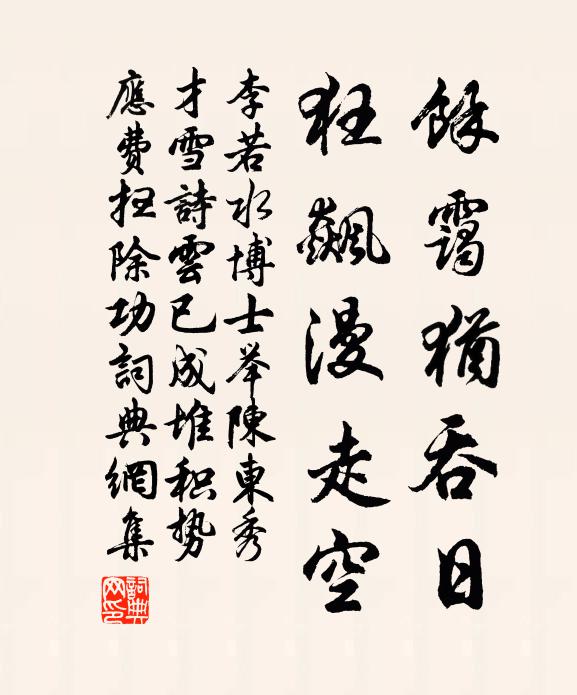 餘靄猶吞日
狂飆漫走空
李若水博士举陳東秀
才雪詩雲已成堆积势
應費扫除功詞典網集
詞典
网印